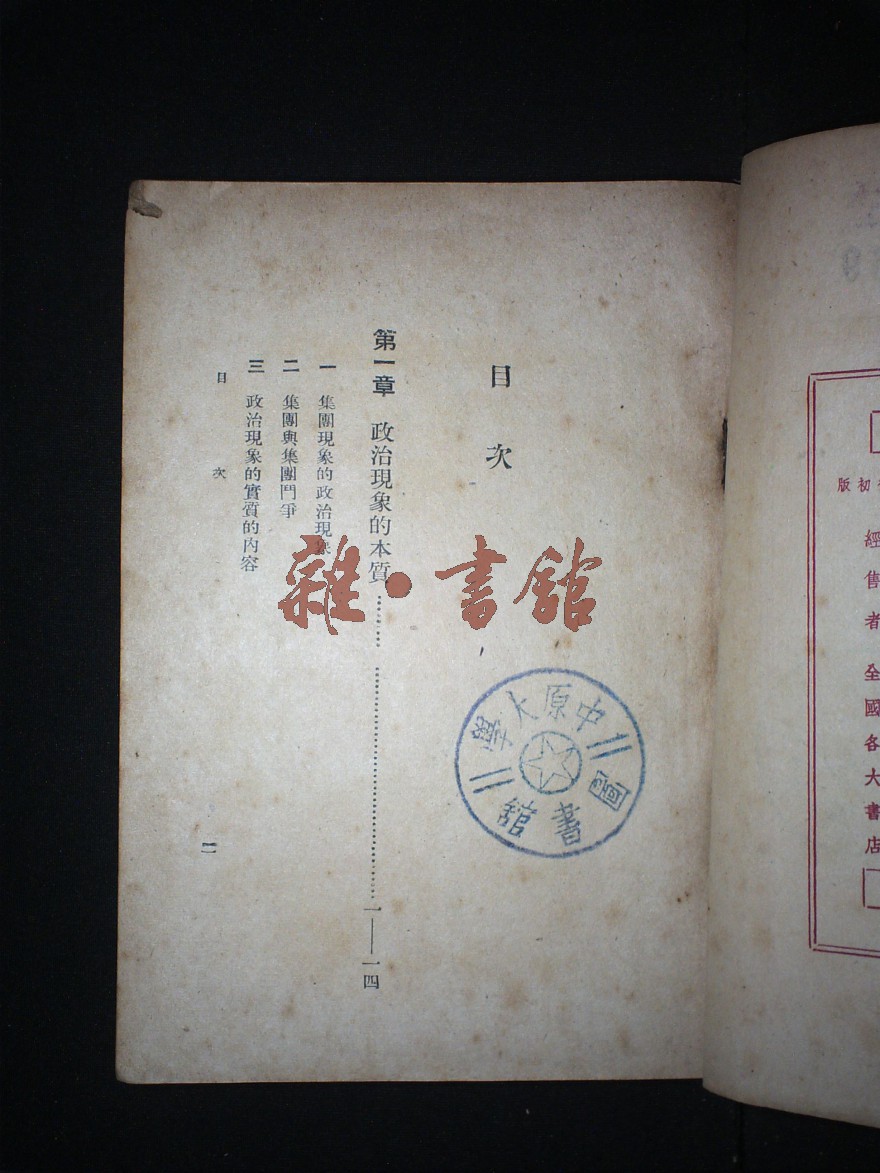 目次
第一章 政治現象的本質……………一——一四
一 集團現象的政治現象
二 集團與集團鬥爭
三 政治現象的實質的內容
目 次
一
雜·書館
中原大學
圖書館
初版
經售者 全國各大書店